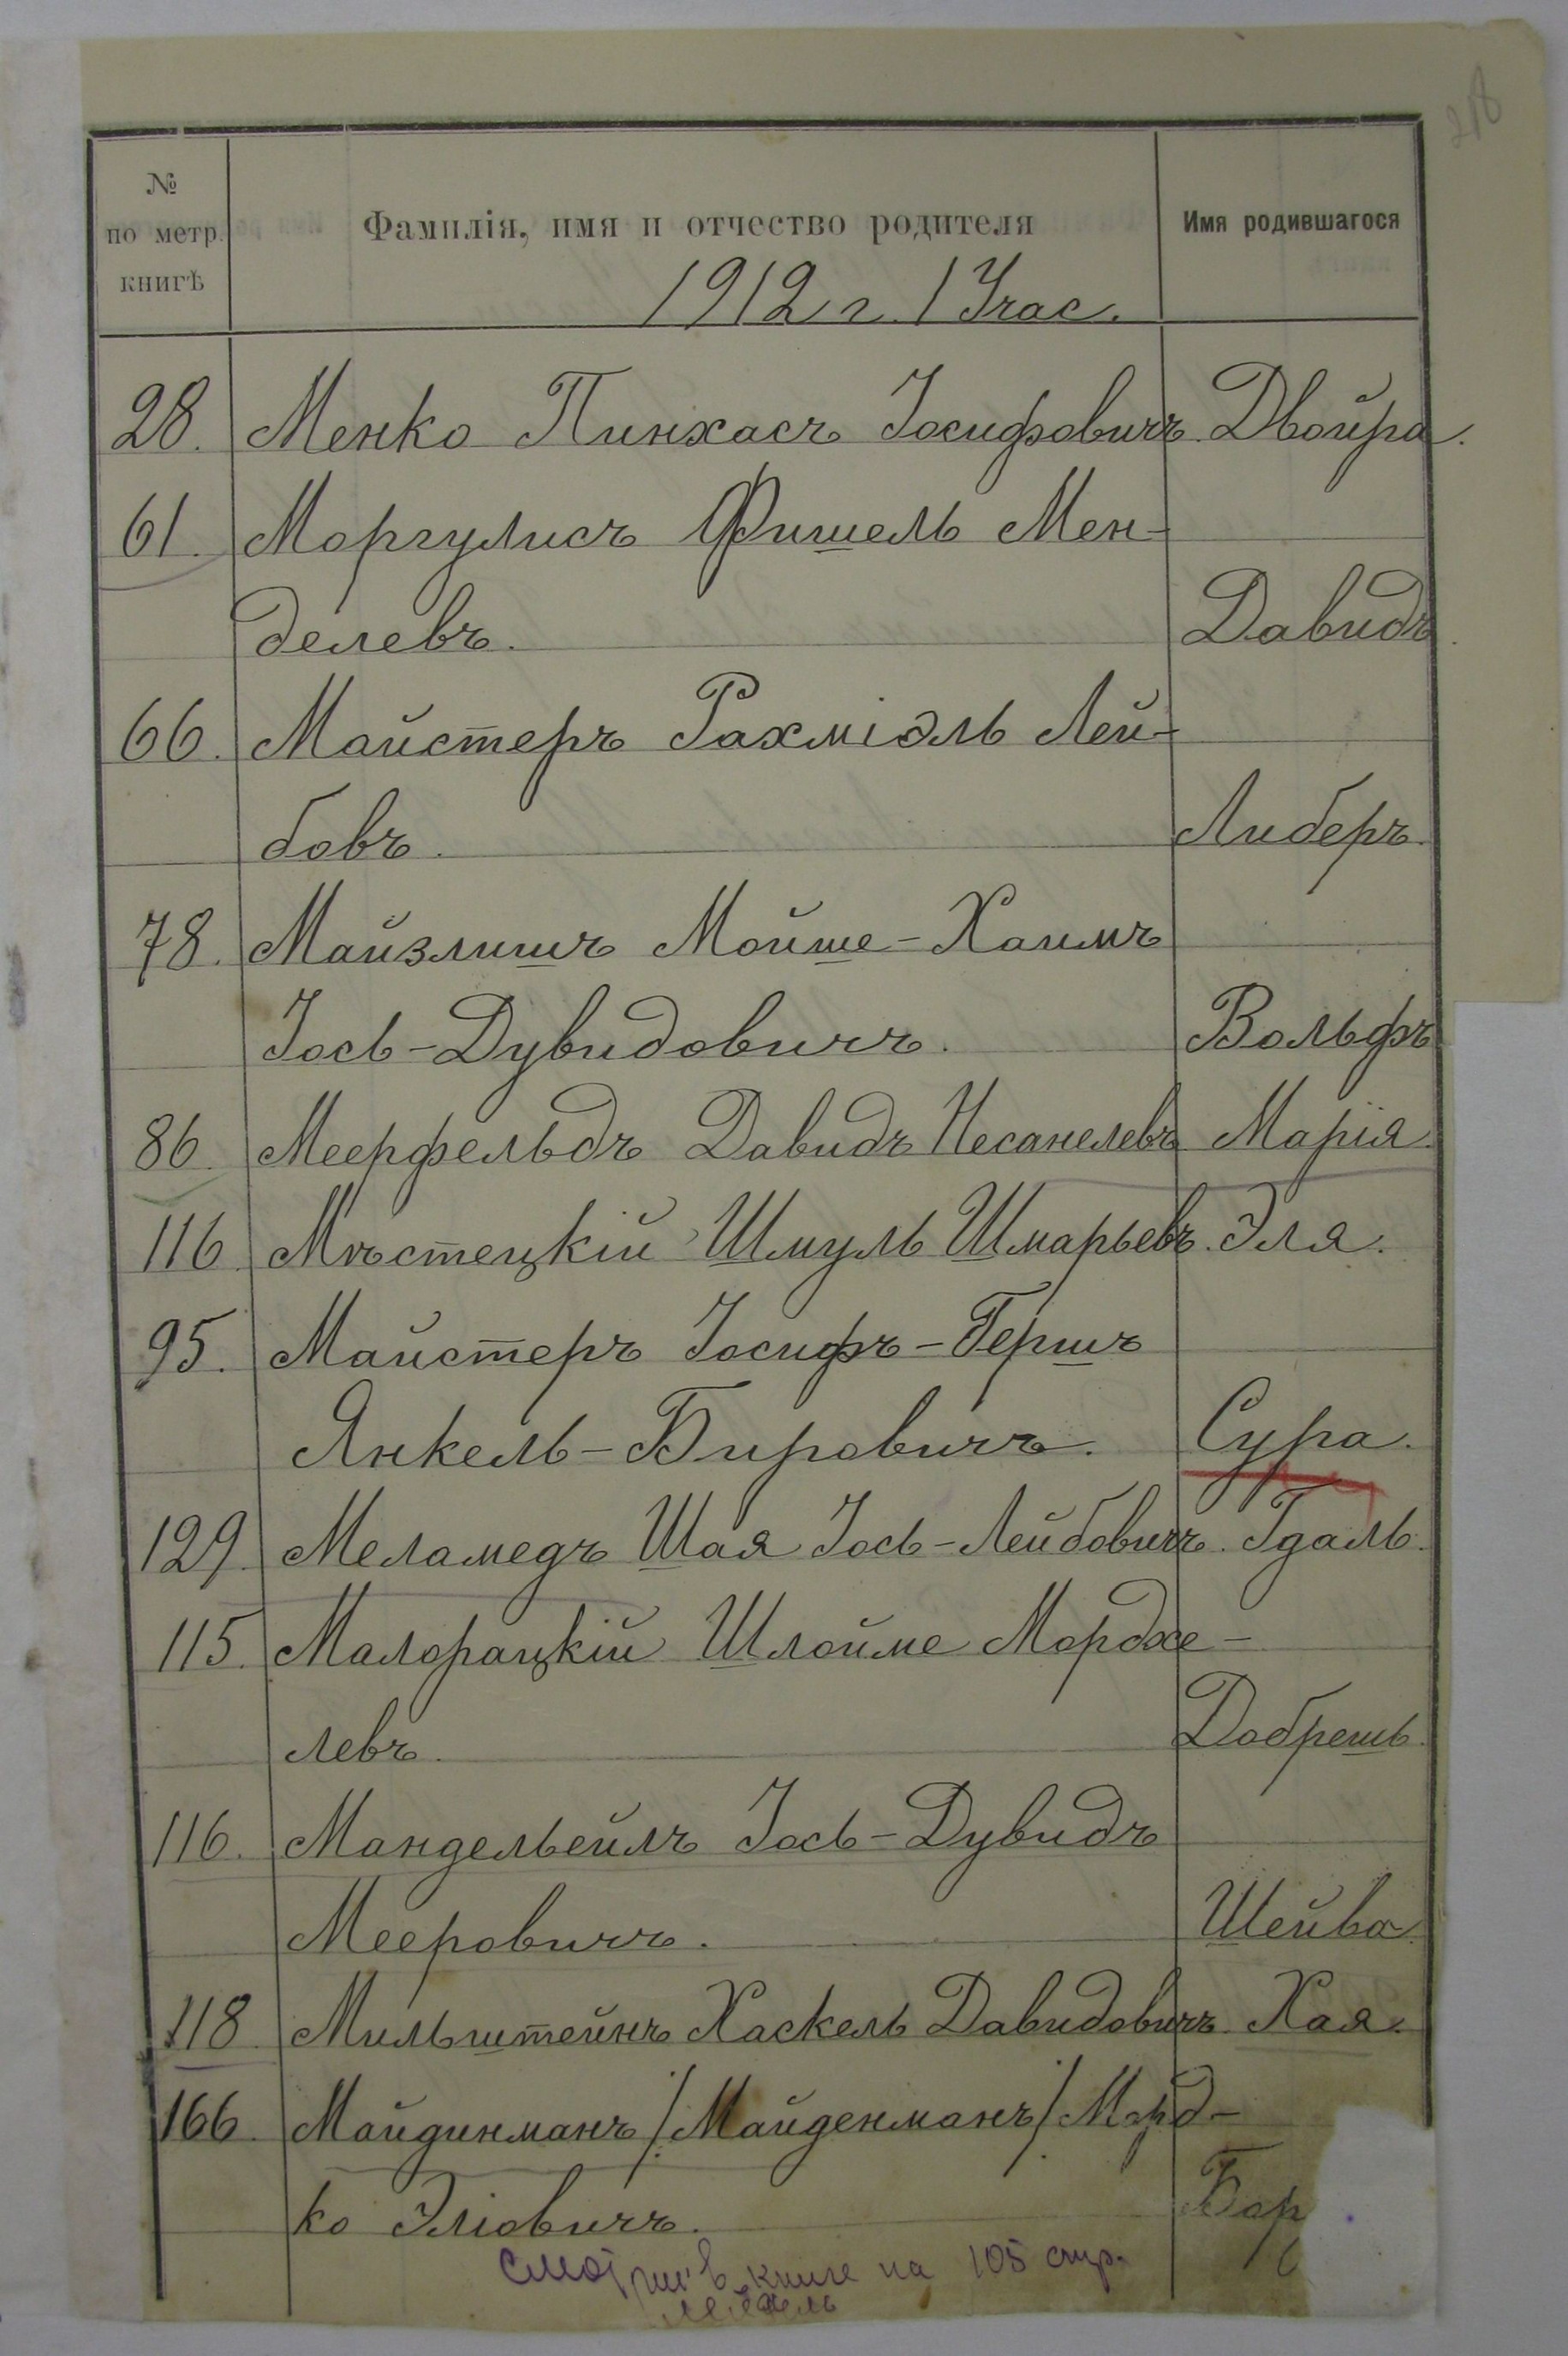 218
№
по метр.
книгѣ
Фамилія, имя и отчество родителя
Имя родившагося
1912 г. 1 Учас.
28. Менко Пинхасъ Іосифовичъ. Двойра.
61. Моргулисъ Фишель Мен-
делевъ. Давидъ.
66. Майстеръ Рахміэль Лей-
бовъ. Либеръ.
78. Майзлишъ Мойше-Хаимъ
Іось-Дувидовичъ. Вольфъ
86. Меерфельдъ Давидъ Несанелевъ Марія.
116. Мѣстецкій Шмуль Шмарьевъ. Эля.
95. Майстеръ Іосифъ-Гершъ
Янкель-Бировичъ. Сура.
129. Меламедъ Шая Іось-Лейбовичъ. Гдаль.
115. Малорацкій Шлойме Мордхе-
левъ. Добрешь.
116. Мандельейлъ Іось-Дувидъ
Мееровичъ. Шейва
118 Мильштейнъ Хаскель Давидовичъ. Хая.
166. Майдинманъ /Майденманъ/ Морд-
ко Эліовичъ. Бор
смотри в книге на 105 стр.